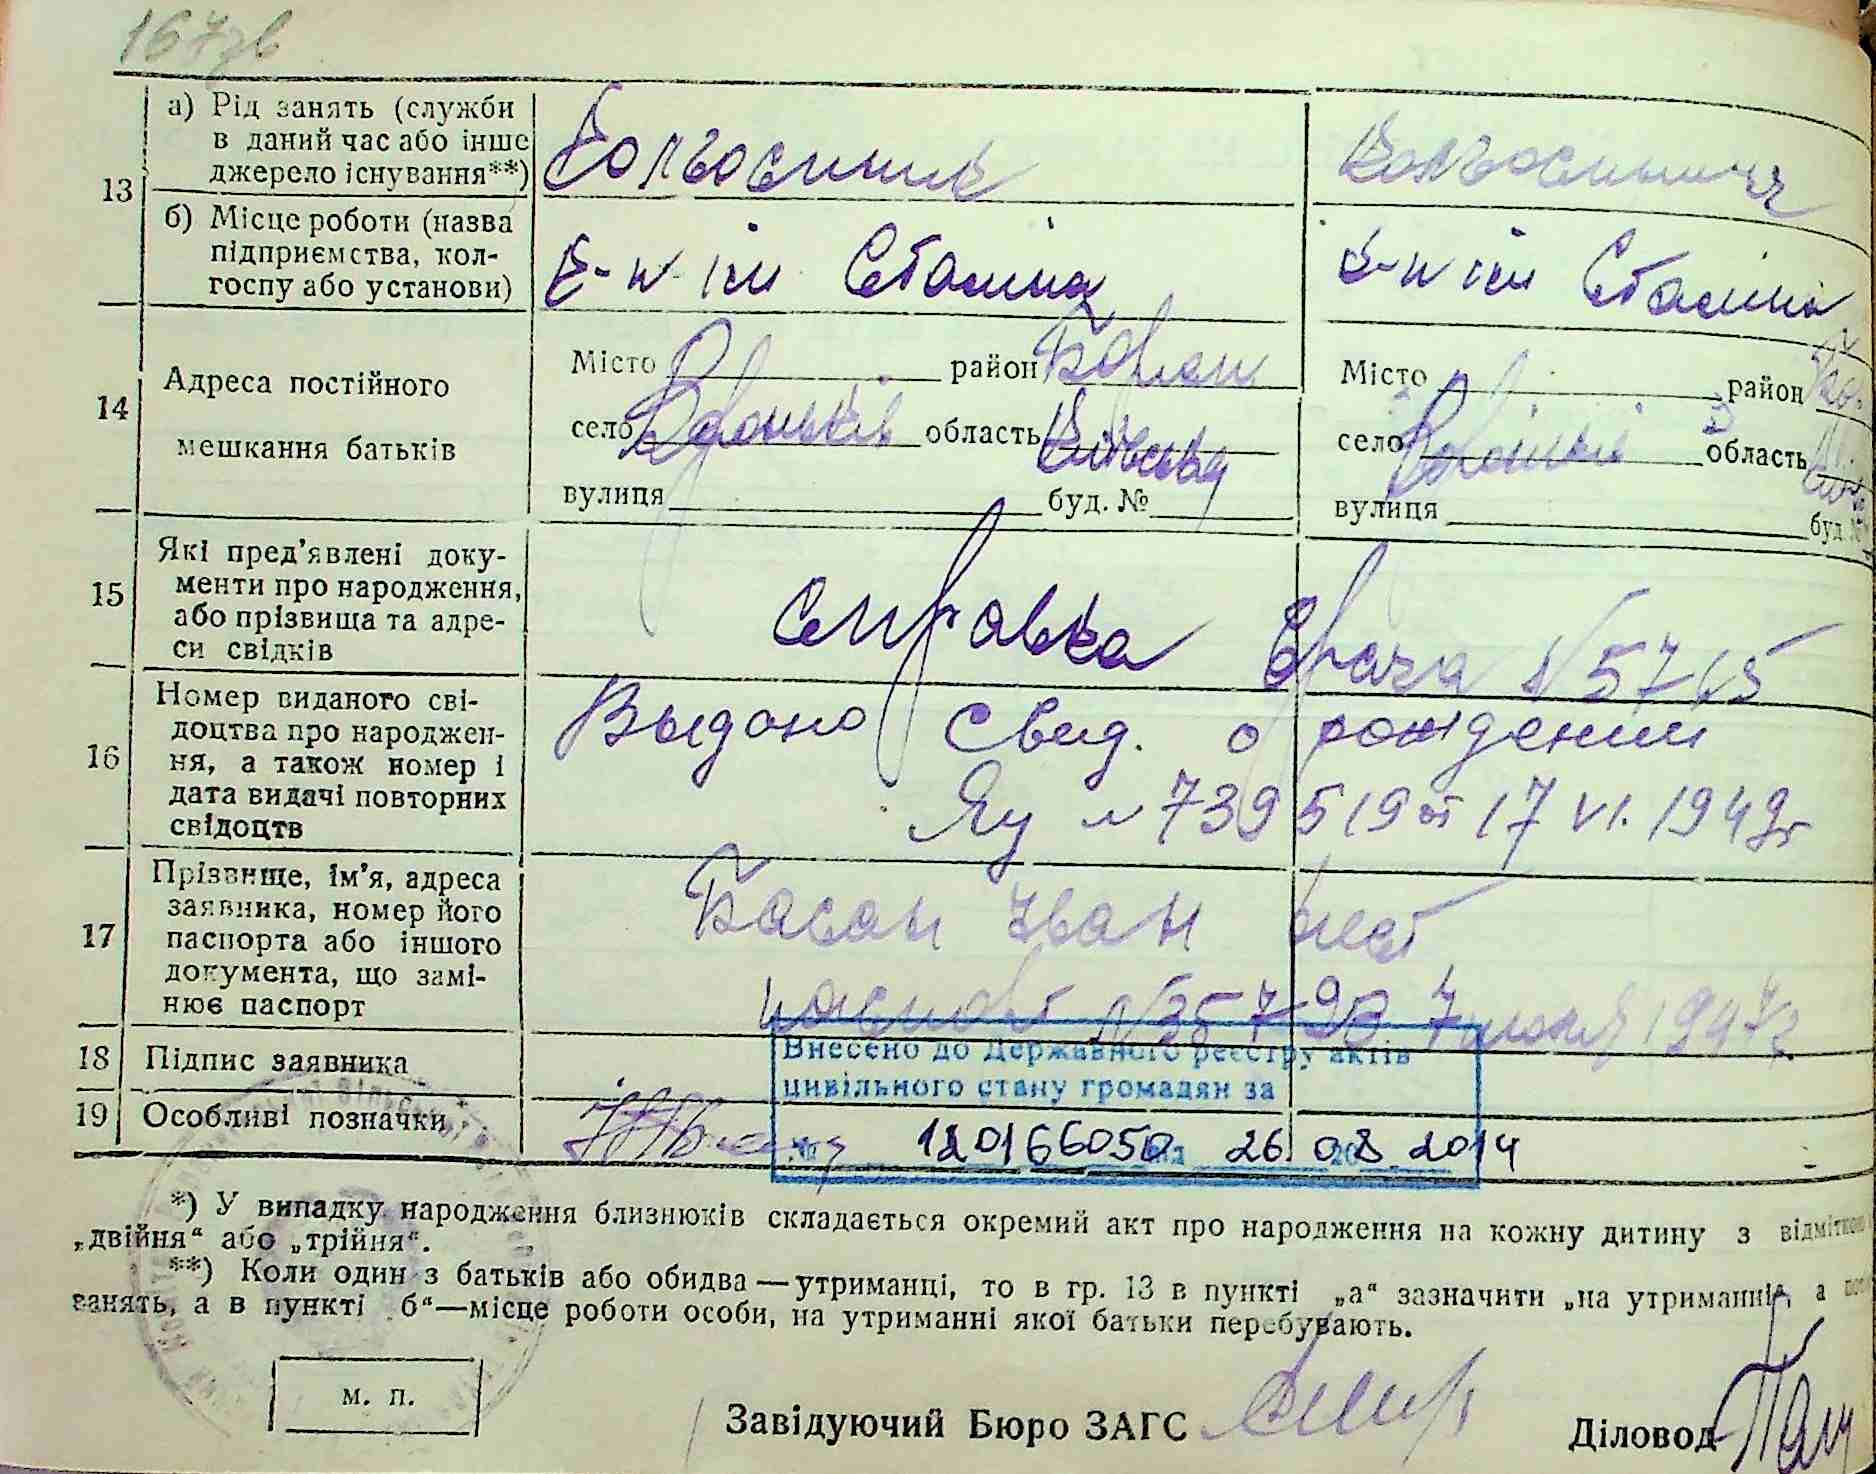 167зв
13
а) Рід занять (служби
в даний час або інше
джерело існування**)
Колгоспник
б) Місце роботи (назва
підприємства, кол-
госпу або установи)
К-п ім Сталіна
К-п ім Сталіна
14
Адреса постійного
мешкання батьків
Місто район
село область Київська
вулиця буд. №
Місто район
село область
вулиця буд. №
15
Які пред’явлені доку-
менти про народження,
або прізвища та адре-
си свідків
Справка врача №
16
Номер виданого сві-
доцтва про народжен-
ня, а також номер і
дата видачі повторних
свідоцтв
Выдано свид. о рождении
№ 739519 от 17 VI. 1949г
17
Прізвище, ім’я, адреса
заявника, номер його
паспорта або іншого
документа, що замі-
нює паспорт
Басан Иван
паспорт
18
Підпис заявника
19
Особливі позначки
Внесено до Державного реєстру актів
цивільного стану громадян за
№ 120166050 від 26 08 2014
*) У випадку народження близнюків складається окремий акт про народження на кожну дитину з відміткою
„двійня“ або „трійня“.
**) Коли один з батьків або обидва—утриманці, то в гр. 13 в пункті „а“ зазначити „на утриманні“, а
занять, а в пункті б“—місце роботи особи, на утриманні якої батьки перебувають.
м. п.
Завідуючий Бюро ЗАГС
Діловод